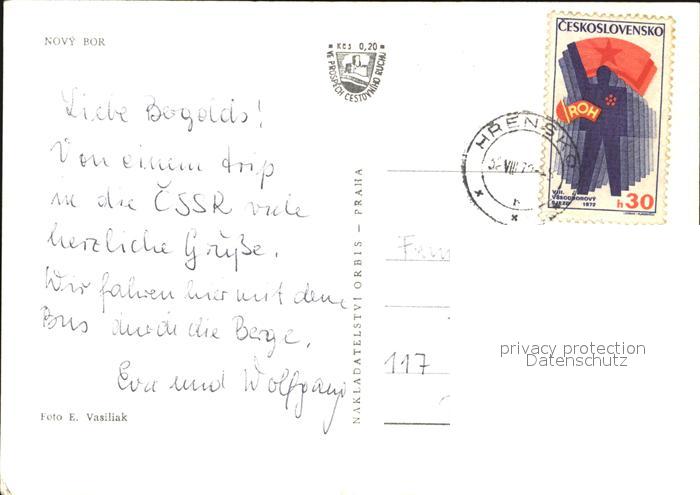 NOVÝ BOR
Kčs 0,20
VE PROSPĚCH CESTOVNÍHO RUCHU
Liebe Bogolds!
Von einem trip
in die ČSSR viele
herzliche Grüße.
Wir fahren hier mit dem
Bus durch die Berge.
Eva und Wolfgang
Foto E. Vasiliak
NAKLADATELSTVÍ ORBIS – PRAHA
HŘENSKO
ČESKOSLOVENSKO
ROH
VIII.
VŠEODBOROVÝ
SJEZD 1972
h30
Fam
117
privacy protection
Datenschutz